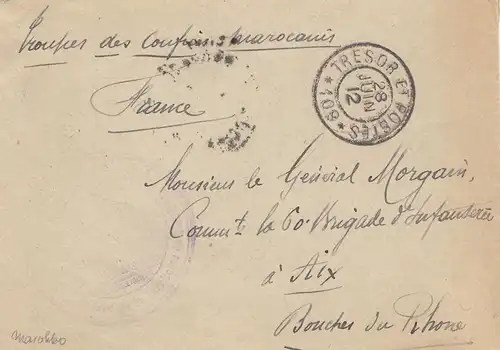 Troupes des Confins marocains
France
* TRESOR ET POSTES * 801
28
JUIN
12
Monsieur le Général Morgain,
Comm.t la 60e Brigade d'Infanterie
à Aix
Bouches du Rhône
Marokko